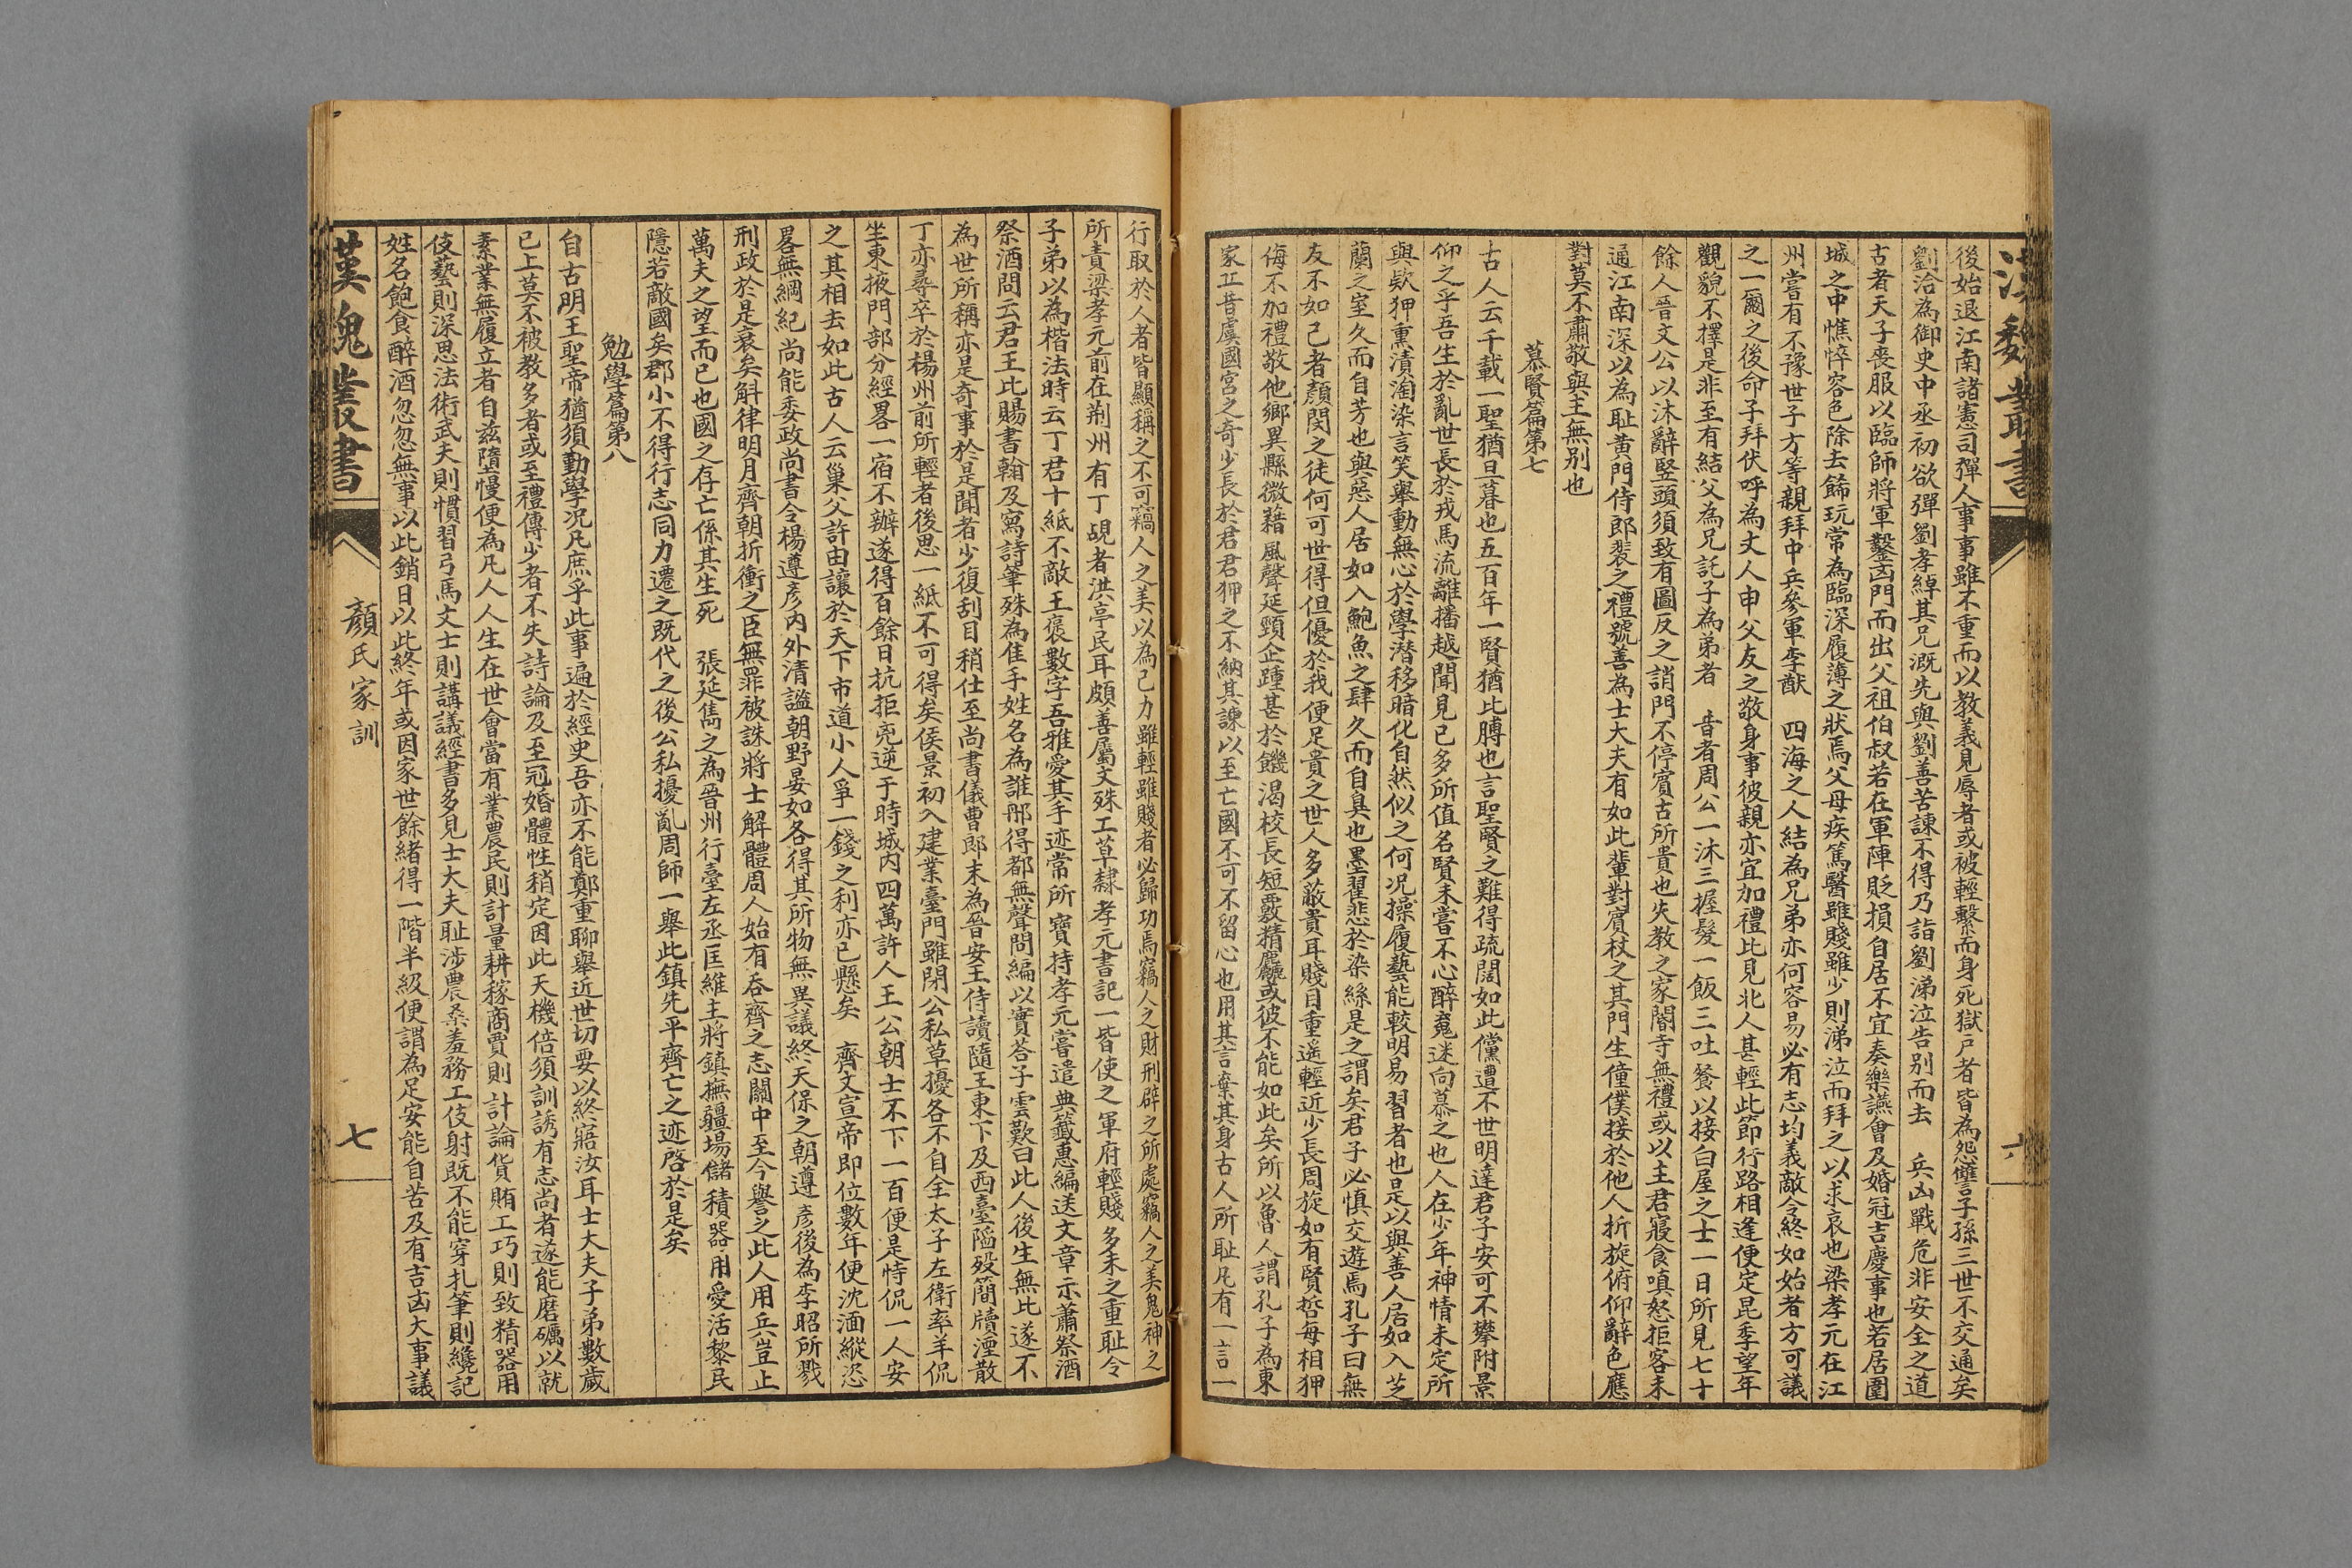 漢魏叢書
六
後始退江南諸憲司彈人事事雖不重而以教義見辱者或被輕繫而身死獄戶者皆為怨讐子孫三世不交通矣
劉洽為御史中丞初欲彈劉孝綽其兄溉先與劉善苦諫不得乃詣劉涕泣告別而去　兵凶戰危非安全之道
古者天子喪服以臨師將軍鑿凶門而出父祖伯叔若在軍陣貶損自居不宜奏樂讌會及婚冠吉慶事也若居圍
城之中憔悴容色除去飾玩常為臨深履薄之狀焉父母疾篤醫雖賤雖少則涕泣而拜之以求哀也梁孝元在江
州嘗有不豫世子方等親拜中兵參軍李猷　四海之人結為兄弟亦何容易必有志均義敵令終如始者方可議
之一爾之後命子拜伏呼為丈人申父友之敬身事彼親亦宜加禮比見北人甚輕此節行路相逢便定昆季望年
觀貌不擇是非至有結父為兄託子為弟者　昔者周公一沐三握髮一飯三吐餐以接白屋之士一日所見七十
餘人晉文公以沐辭竪頭須致有圖反之誚門不停賓古所貴也失教之家閽寺無禮或以主君寢食嗔怒拒客未
通江南深以為恥黄門侍郎裴之禮號善為士大夫有如此輩對賓杖之其門生僮僕接於他人折旋俯仰辭色應
對莫不肅敬與主無别也
慕賢篇第七
古人云千載一聖猶旦暮也五百年一賢猶比膊也言聖賢之難得疏闊如此儻遭不世明達君子安可不攀附景
仰之乎吾生於亂世長於戎馬流離播越聞見已多所值名賢未嘗不心醉䰟迷向慕之也人在少年神情未定所
與欵狎熏漬淘染言笑舉動無心於學潛移暗化自然似之何况操履藝能較明易習者也是以與善人居如入芝
蘭之室久而自芳也與惡人居如入鮑魚之肆久而自臭也墨翟悲於染絲是之謂矣君子必慎交遊焉孔子曰無
友不如己者顏閔之徒何可世得但優於我便足貴之世人多蔽貴耳賤目重遥輕近少長周旋如有賢哲每相狎
侮不加禮敬他鄉異縣微藉風聲延頸企踵甚於饑渴校長短覈精麤或彼不能如此矣所以魯人謂孔子為東
家丘昔虞國宮之奇少長於君君狎之不納其諫以至亡國不可不留心也用其言棄其身古人所恥凡有一言一
行取於人者皆顯稱之不可竊人之美以為己力雖輕雖賤者必歸功焉竊人之財刑辟之所處竊人之美鬼神之
所責梁孝元前在荆州有丁覘者洪亭民耳頗善屬文殊工草隸孝元書記一皆使之軍府輕賤多未之重恥令
子弟以為楷法時云丁君十紙不敵王褒數字吾雅愛其手迹常所寶持孝元嘗遣典籤惠編送文章示蕭祭酒
祭酒問云君王比賜書翰及寫詩筆殊為佳手姓名為誰那得都無聲問編以實荅子雲歎曰此人後生無比遂不
為世所稱亦是奇事於是聞者少復刮目稍仕至尚書儀曹郎末為晉安王侍讀隨王東下及西臺䧟殁簡牘湮散
丁亦尋卒於楊州前所輕者後思一紙不可得矣侯景初入建業臺門雖閉公私草擾各不自全太子左衛率羊侃
坐東掖門部分經畧一宿不辦遂得百餘日抗拒兇逆于時城内四萬許人王公朝士不下一百便是恃侃一人安
之其相去如此古人云巢父許由讓於天下市道小人爭一錢之利亦已懸矣　齊文宣帝即位數年便沈湎縱恣
畧無綱紀尚能委政尚書令楊遵彦内外清謐朝野晏如各得其所物無異議終天保之朝遵彦後為李昭所戮
刑政於是衰矣斛律明月齊朝折衝之臣無罪被誅將士解體周人始有吞齊之志關中至今譽之此人用兵豈止
萬夫之望而已也國之存亡係其生死　張延雋之為晉州行臺左丞匡維主將鎮撫疆場儲積器用愛活黎民
隱若敵國矣郡小不得行志同力遷之既代之後公私擾亂周師一舉此鎮先平齊亡之迹啓於是矣
勉學篇第八
自古明王聖帝猶須勤學况凡庶乎此事遍於經史吾亦不能鄭重聊舉近世切要以終寤汝耳士大夫子弟數歲
已上莫不被教多者或至禮傳少者不失詩論及至冠婚體性稍定因此天機倍須訓誘有志尚者遂能磨礪以就
素業無履立者自兹隋慢便為凡人人生在世會當有業農民則計量耕稼商賈則計論貨賄工巧則致精器用
伎藝則深思法術武夫則慣習弓馬文士則講議經書多見士大夫恥涉農桑羞務工伎射既不能穿札筆則纔記
姓名飽食醉酒忽忽無事以此銷日以此終年或因家世餘緒得一階半級便謂為足安能自苦及有吉凶大事議
漢魏叢書
顏氏家訓
七